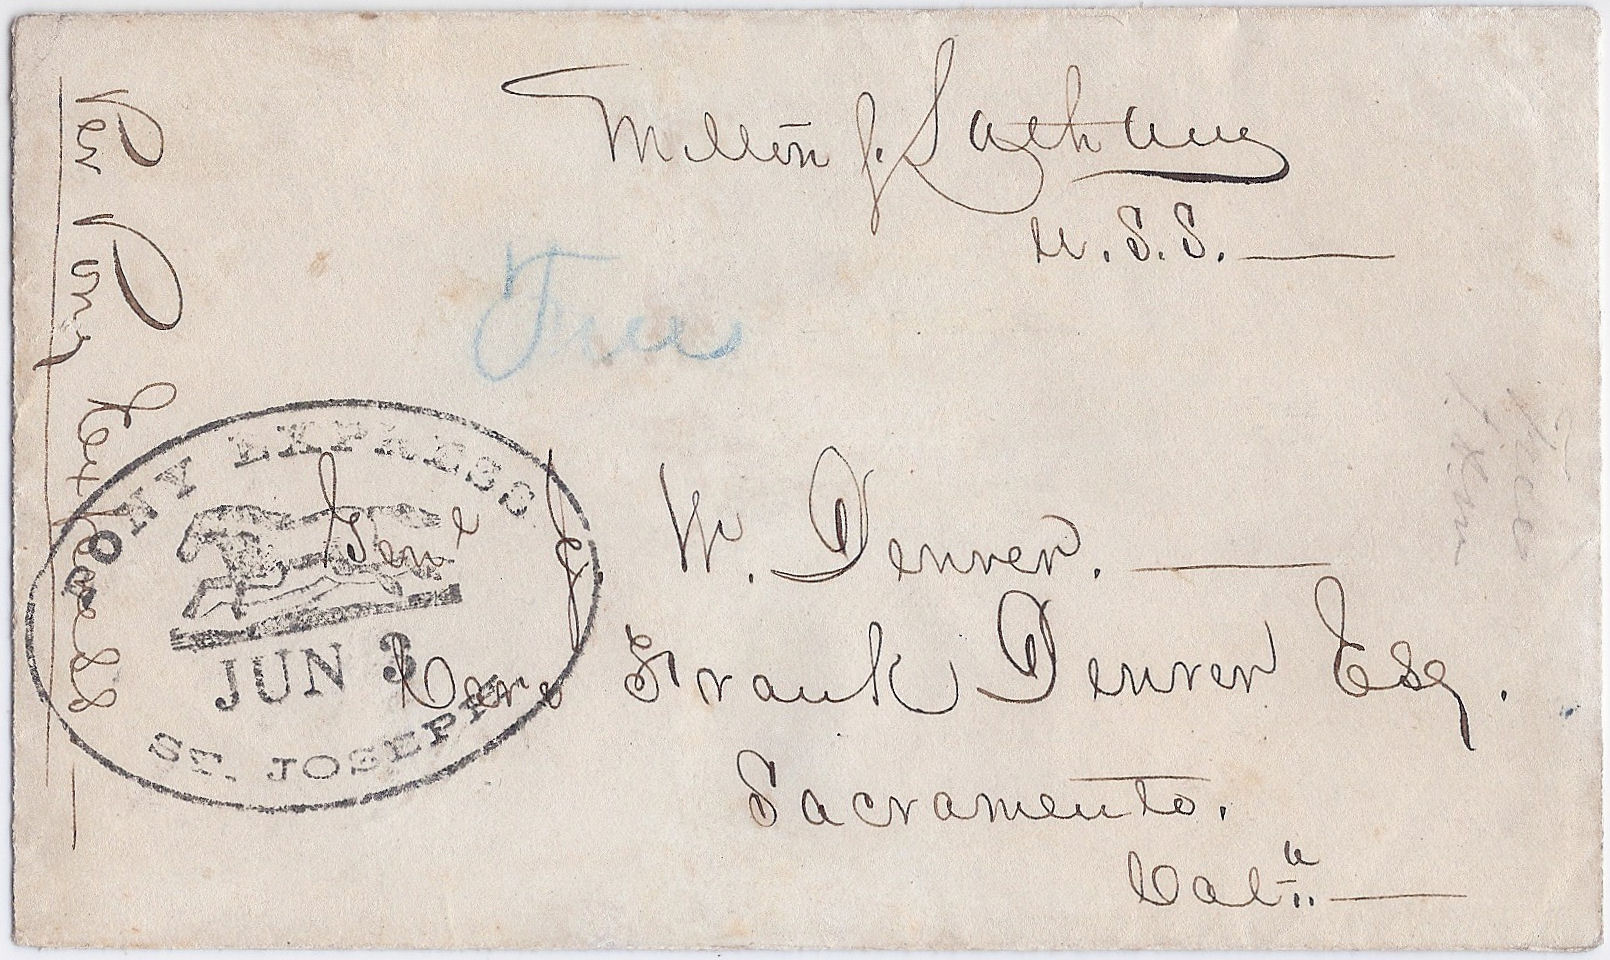 Milton S. Latham
U.S.S.
Free
Per Pony Express
PONY EXPRESS
JUN 3
ST. JOSEPH
Genl J. W. Denver.
Care Frank Denver Esq.
Sacramento.
Cala